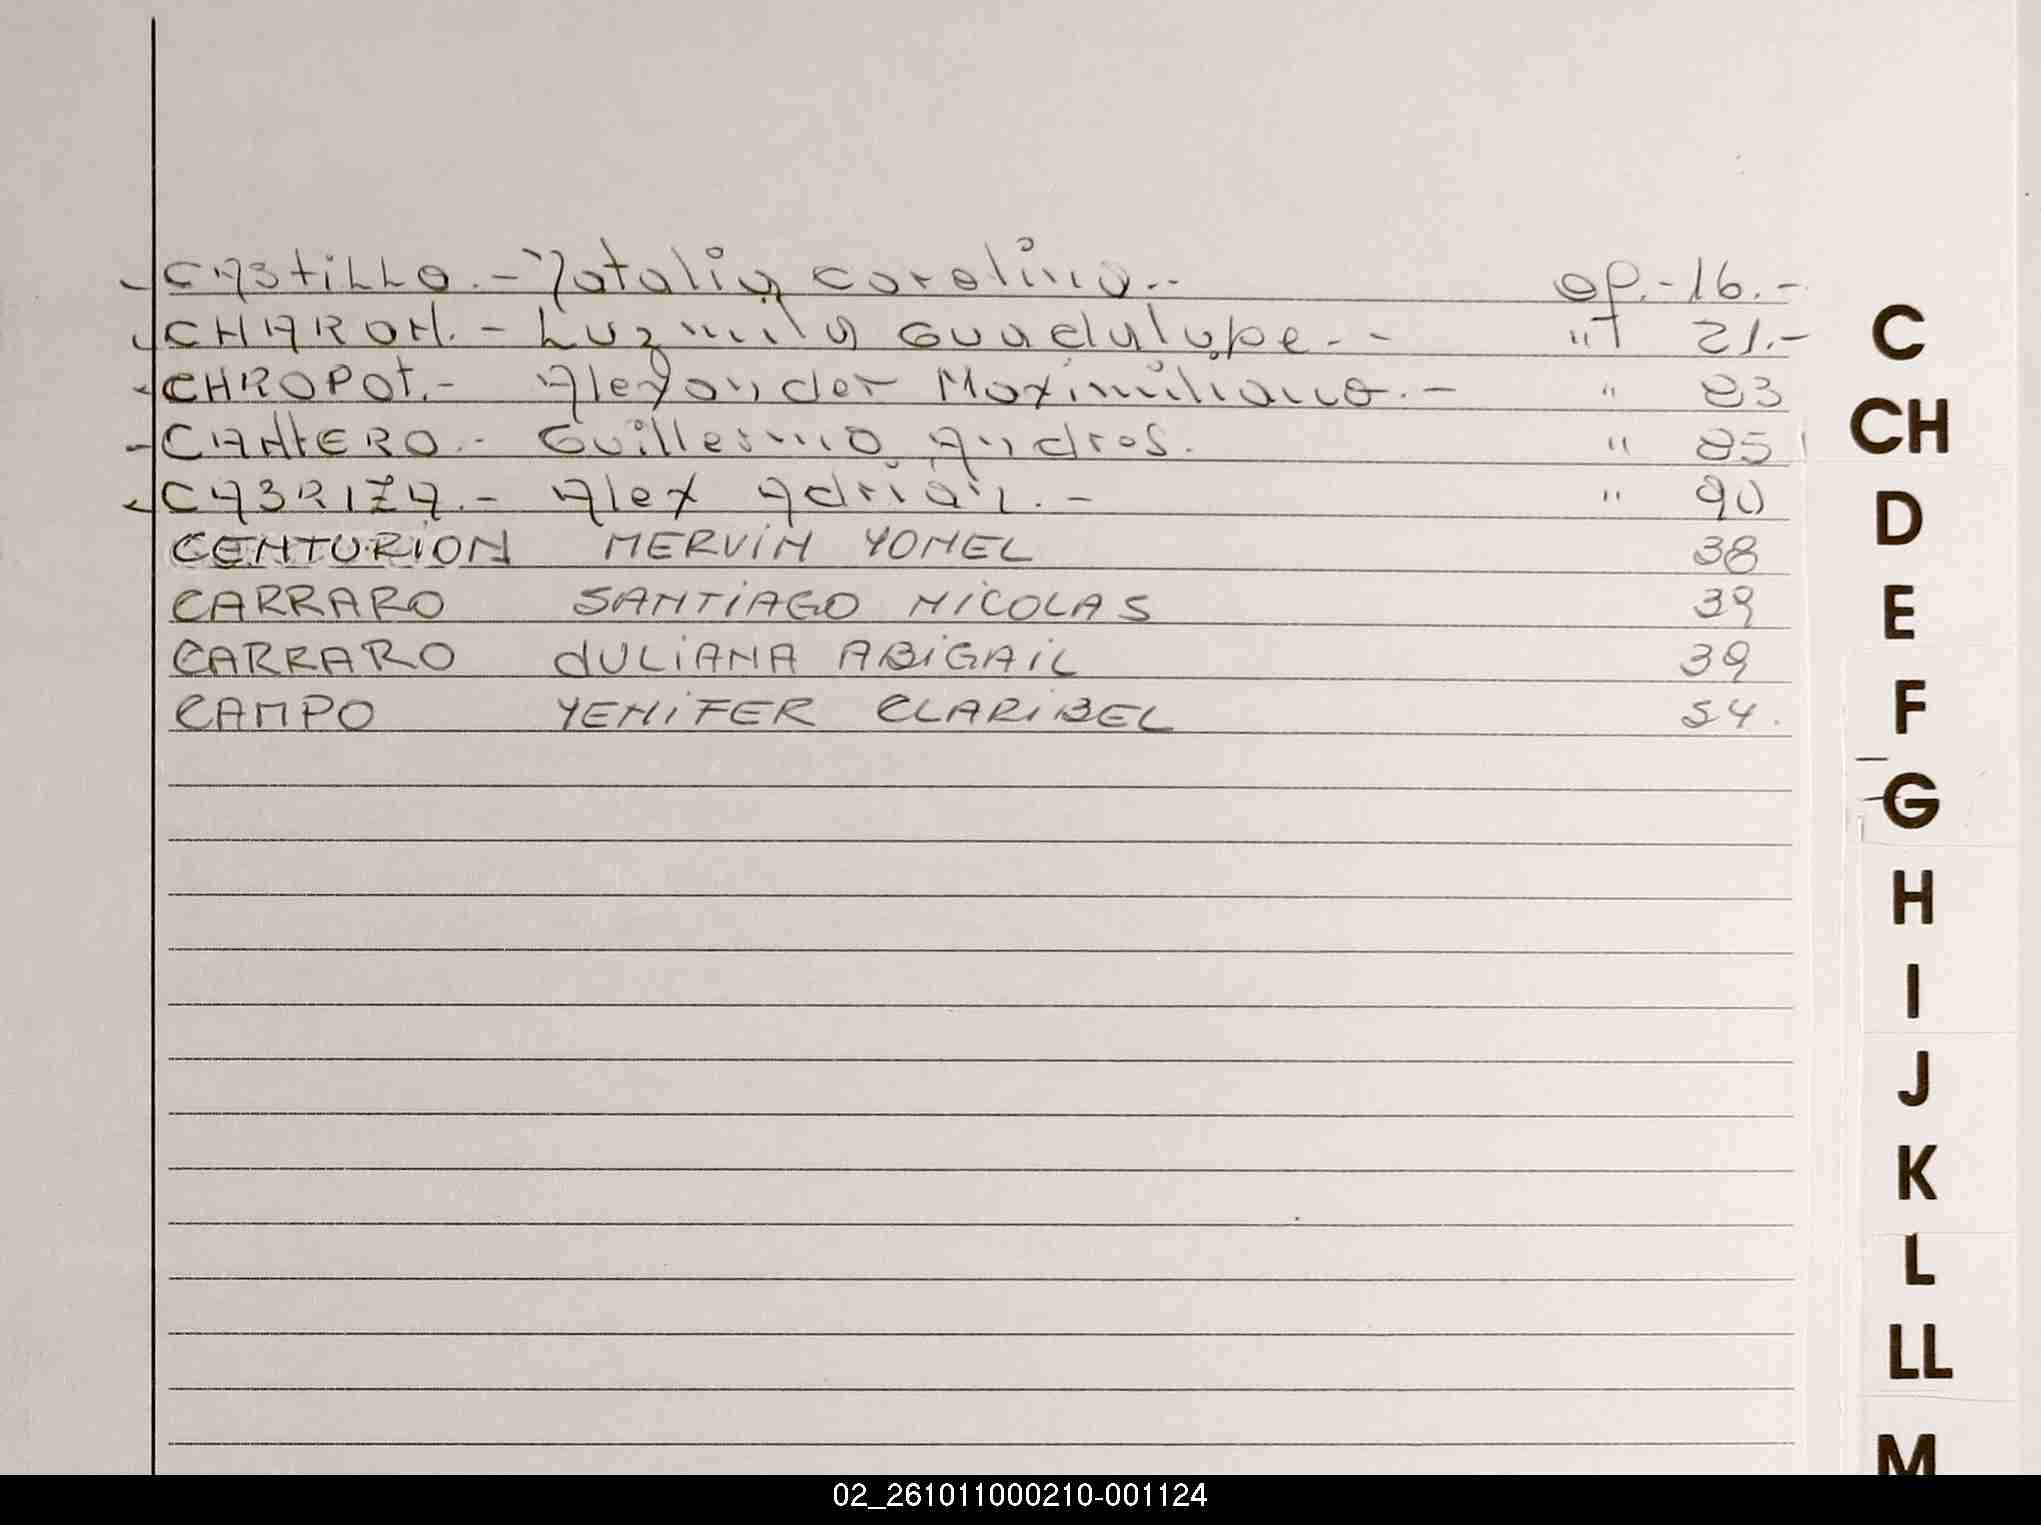 CASTILLO.- Natalia Carolina.- ap.-16.-
CHARON.- Luzmila Guadalupe.- " 21.-
CHROPOT.- Alexander Maximiliano.- " 83
CANTERO.- Guillermo Andres. " 85
CABRIZA.- Alex Adrián.- " 90
CENTURION MERVIN YONEL 38
CARRARO SANTIAGO NICOLAS 39
CARRARO JULIANA ABIGAIL 39
CAMPO YENIFER CLARIBEL 54.
C
CH
D
E
F
G
H
I
J
K
L
LL
M
02_261011000210-001124